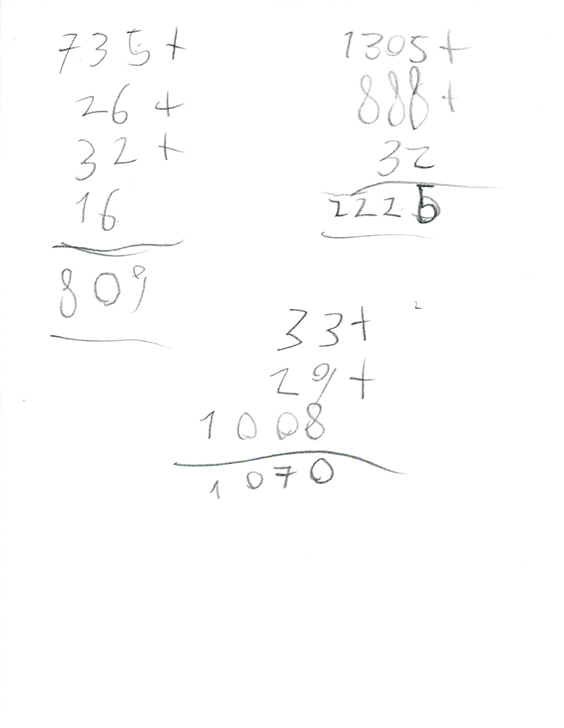 735+
26+
32+
16
809
1305+
888+
32
2225
33+
29+
1008
1070